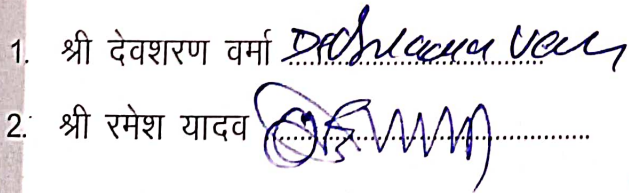 1. श्री देवशरण वर्मा
2. श्री रमेश यादव